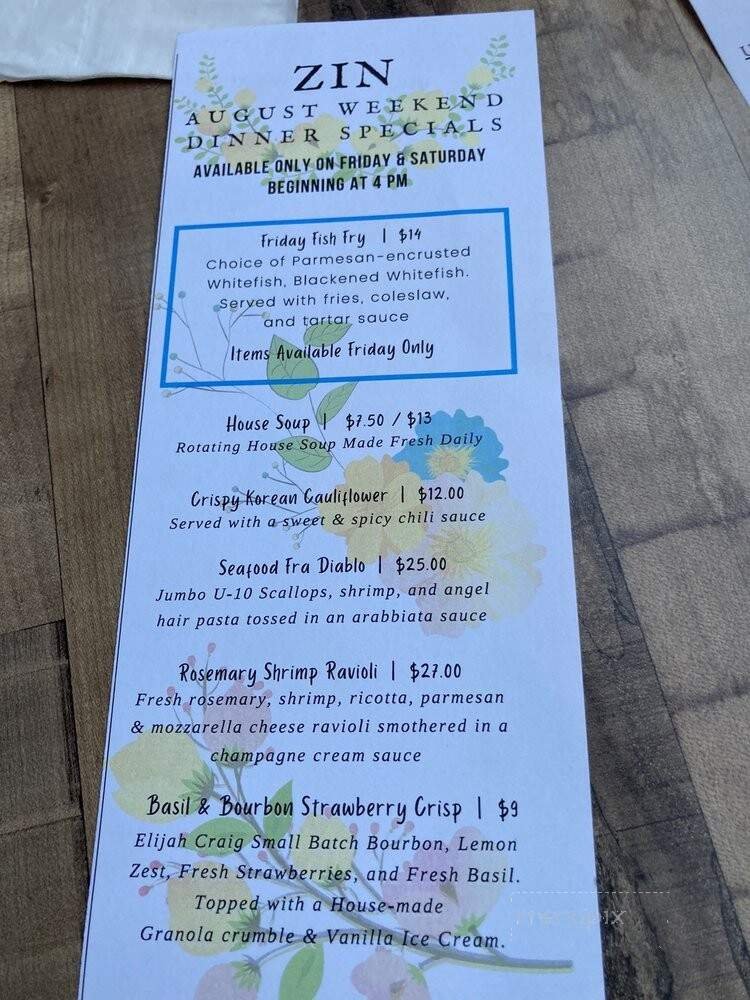 ZIN
AUGUST WEEKEND
DINNER SPECIALS
AVAILABLE ONLY ON FRIDAY & SATURDAY
BEGINNING AT 4 PM
Friday Fish Fry | $14
Choice of Parmesan-encrusted
Whitefish, Blackened Whitefish.
Served with fries, coleslaw,
and tartar sauce
Items Available Friday Only
House Soup | $7.50 / $13
Rotating House Soup Made Fresh Daily
Crispy Korean Cauliflower | $12.00
Served with a sweet & spicy chili sauce
Seafood Fra Diablo | $25.00
Jumbo U-10 Scallops, shrimp, and angel
hair pasta tossed in an arabbiata sauce
Rosemary Shrimp Ravioli | $27.00
Fresh rosemary, shrimp, ricotta, parmesan
& mozzarella cheese ravioli smothered in a
champagne cream sauce
Basil & Bourbon Strawberry Crisp | $9
Elijah Craig Small Batch Bourbon, Lemon
Zest, Fresh Strawberries, and Fresh Basil.
Topped with a House-made
Granola crumble & Vanilla Ice Cream.